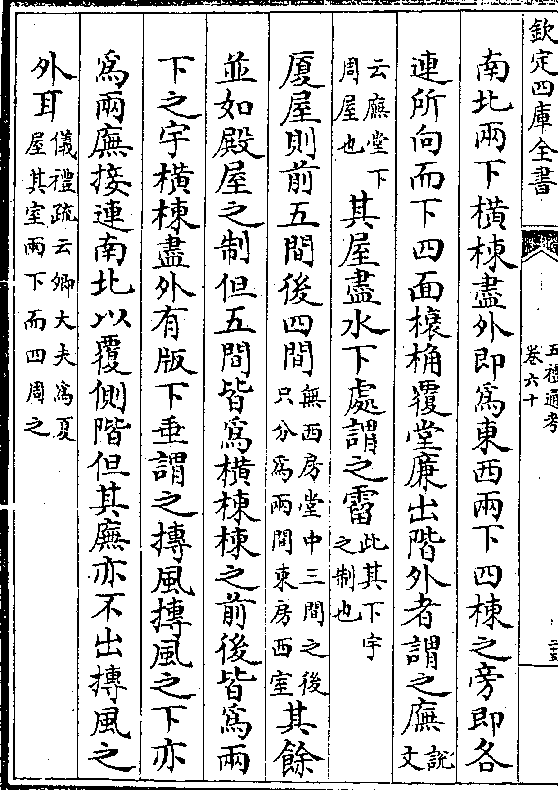 欽定四庫全書
五禮通考
卷六十
南北兩下橫棟盡外即爲東西兩下四棟之旁即各
連所向而下四面榱桷覆堂廉出階外者謂之廡說文
云廡堂下周屋也其屋盡水下處謂之霤此其下宇之制也
厦屋則前五間後四間無西房堂中三間之後只分爲兩間東房西室其餘
並如殿屋之制但五間皆爲橫棟棟之前後皆爲兩
下之宇橫棟盡外有版下垂謂之摶風摶風之下亦
爲兩廡接連南北以覆側階但其廡亦不出摶風之
外耳儀禮疏云卿大夫爲夏屋其室兩下而四周之